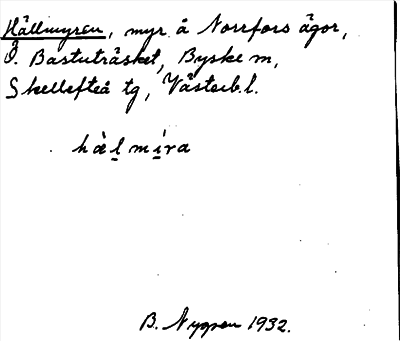 Hällmyren, myr å Norrfors ägor,
Ö. Bastuträsket, Byske sn,
Skellefteå tg, Västerb. l.
hàl míra
B. Nygren 1932.